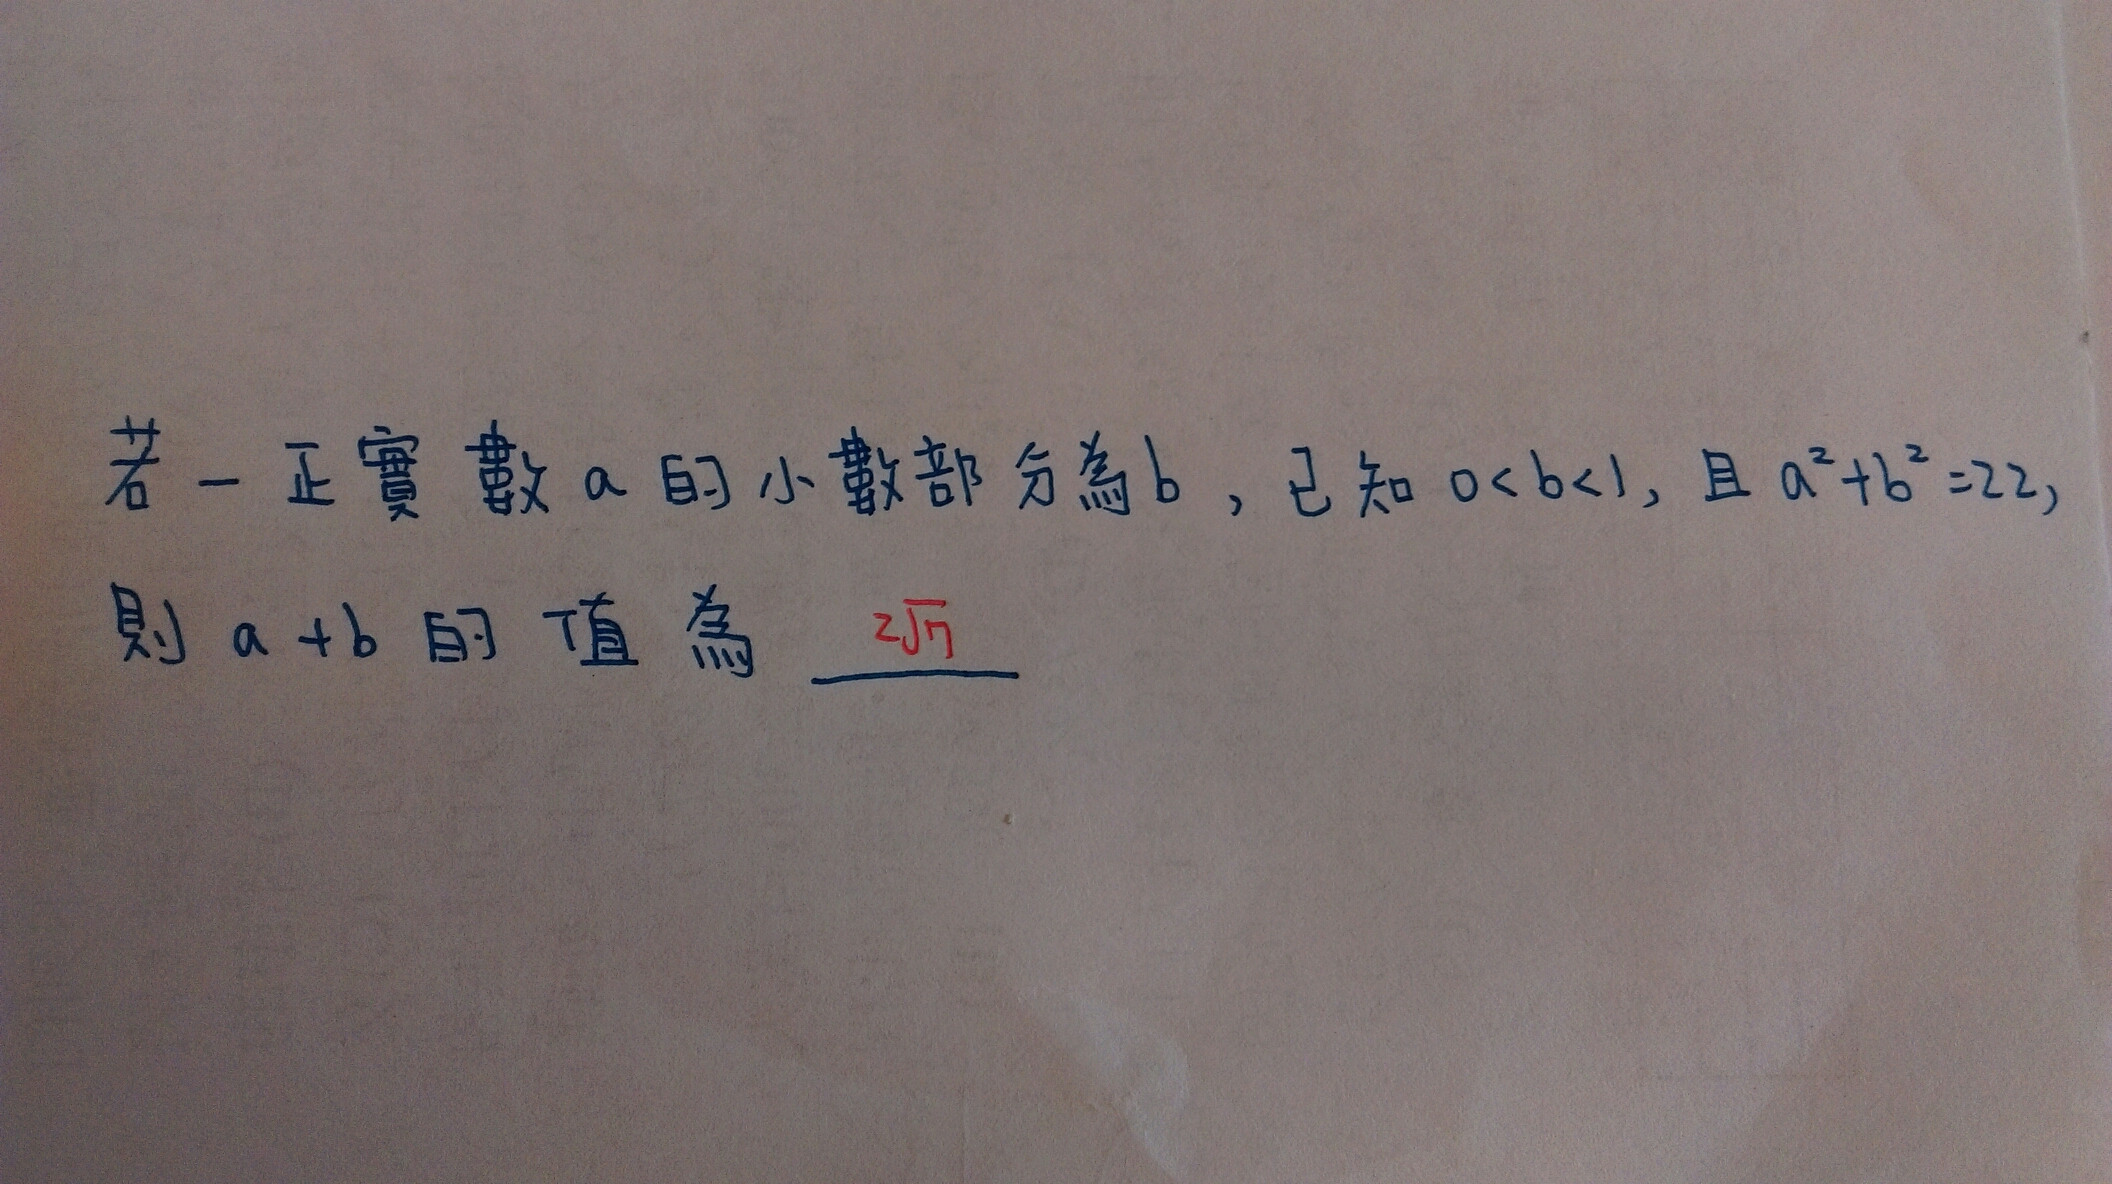 若一正實數a的小數部分為b，已知0<b<1，且a²+b²=22，
則a+b的值為 2√7